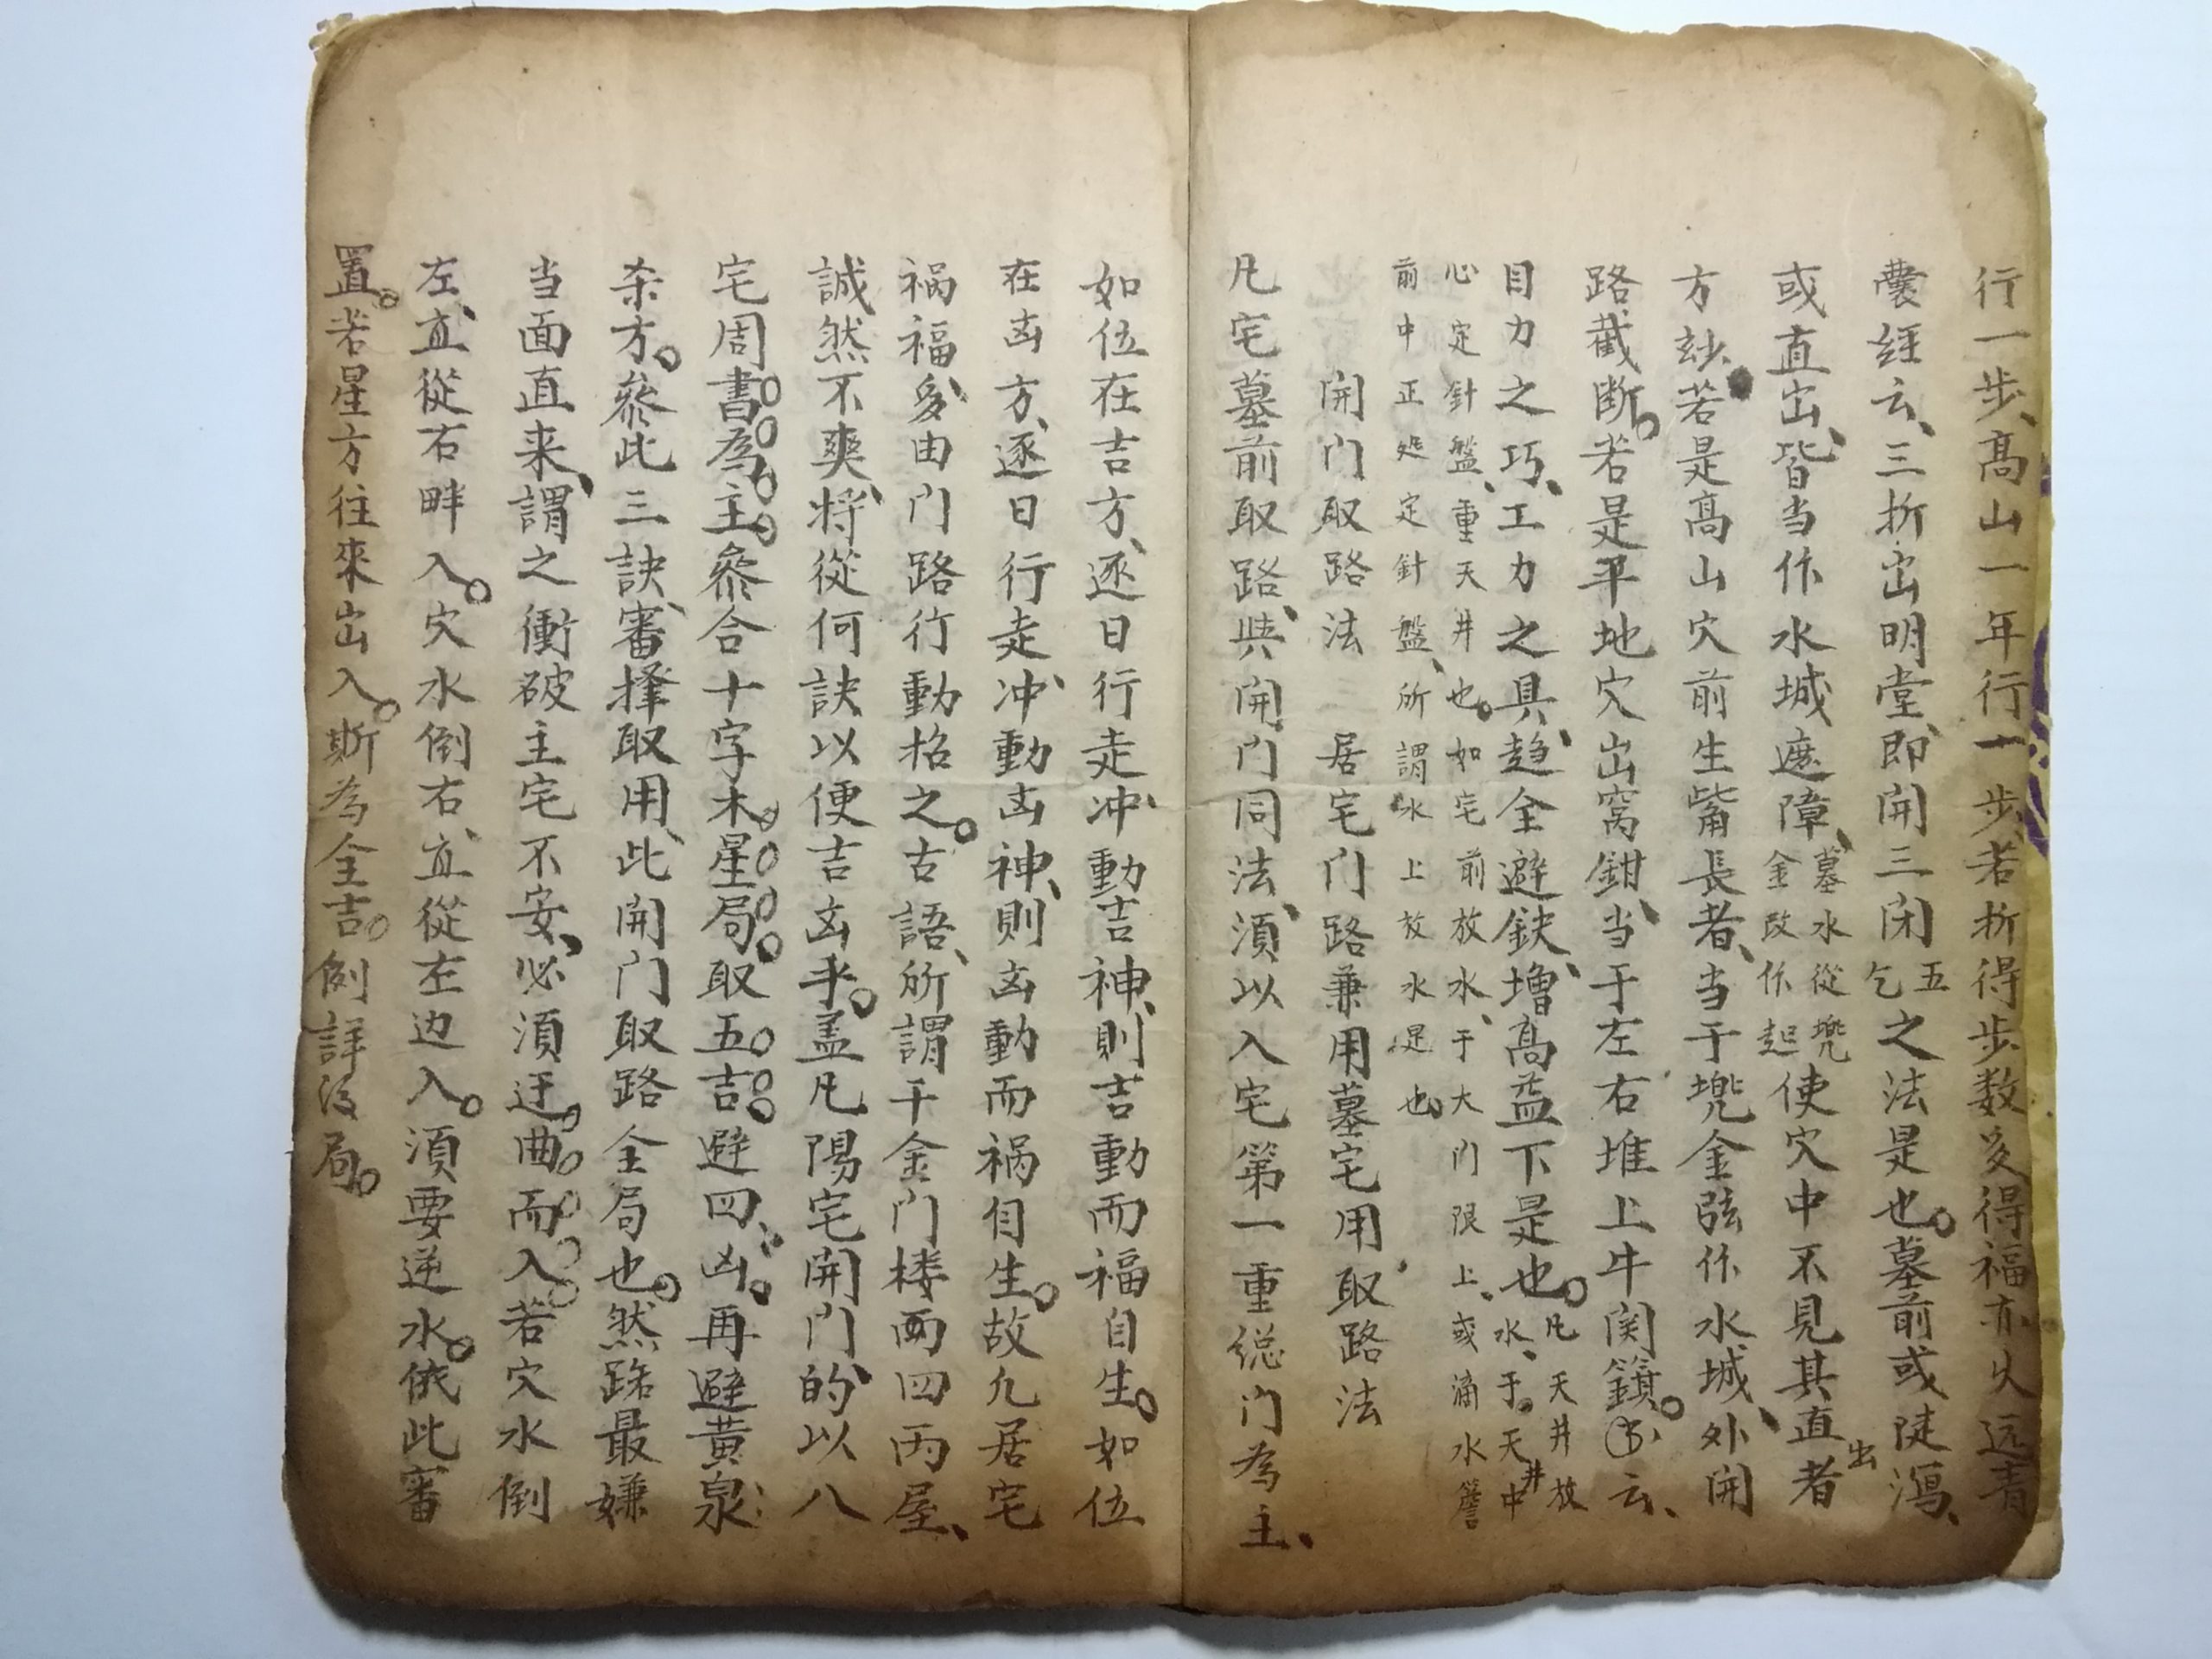 行一步、高山一年行一步、若折得步数多得福亦久远青
囊经云、三折出明堂、即開三闭五乞之法是也。墓前或陡瀉、
或直出、皆当作水城遮障、墓水從兜金改作起使穴中不見其直出者
方玅、若是高山穴前生觜長者、当于兜金弦作水城、外開
路、截断。若是平地穴出窝鉗、当于左右堆上牛関鎖。云、
目力之巧、工力之具、趋全避缺、增高益下是也。凡天井放水、于天井中
心定針盤、重天井也。如宅前放水、于大门限上、或滴水簷
前中正処定針盤、所謂水上放水是也。
開门取路法　居宅门路兼用墓宅用取路法
凡宅墓前取路、與開门同法、須以入宅第一重総门為主、
如位在吉方、逐日行走、冲動吉神、則吉動而福自生。如位
在凶方、逐日行走、冲動凶神、則凶動而祸自生。故凢居宅
祸福多由门路行動招之。古語、所謂千金门楼両四両屋、
誠然不爽、将從何訣以便吉凶乎。盖凡陽宅開门的、以八
宅周書為主。叅合十字木星局。取五吉。避四凶。再避黄泉
杀方。叅此三訣、審擇取用、此開门取路全局也。然路最嫌
当面直来、謂之衝破主宅不安、必須迂曲而入。若穴水倒
左、直從右畔入。穴水倒右、直從左边入。須要逆水。依此審
置。若星方往來出入。斯為全吉。例詳後局。